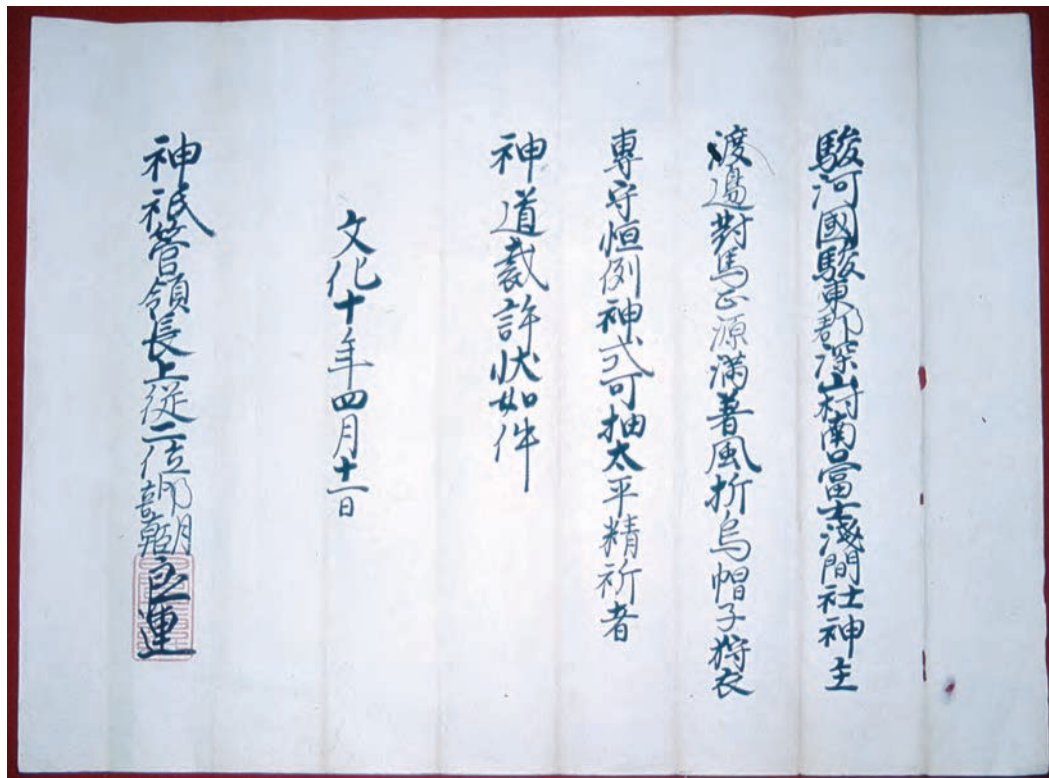 駿河國駿東郡深山村南口冨士淺間社神主
渡邉對馬正源満著風折烏帽子狩衣
專守恒例神式可抽太平精祈者
神道裁許状如件
文化十年四月十一日
神祇管領長上従二位卜部朝臣良連